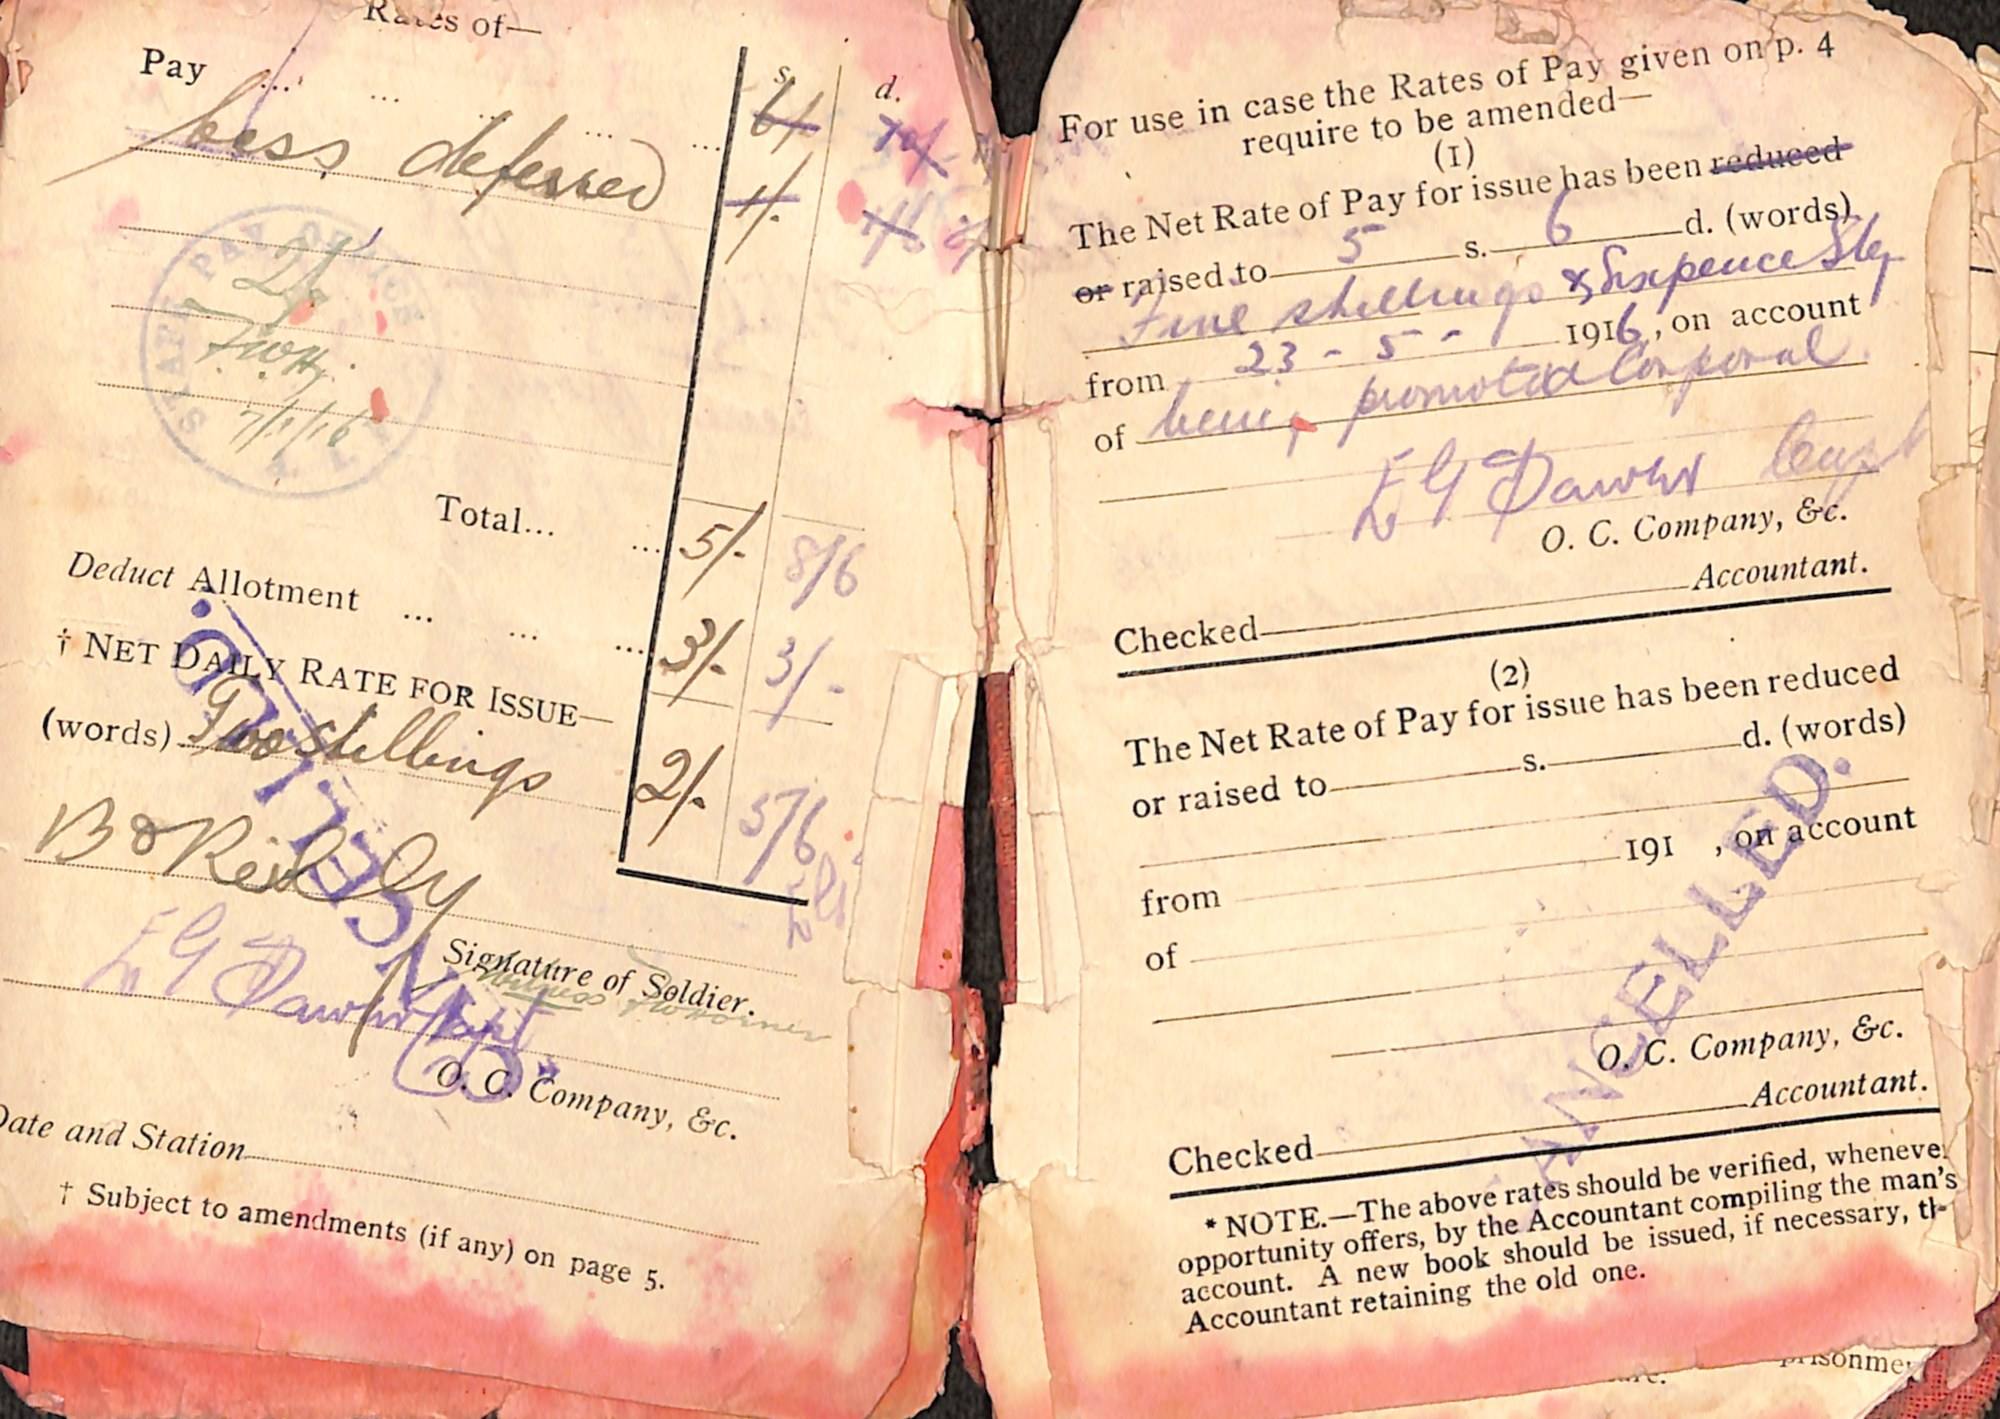 Rates of—
s. d.
Pay ... ... ... ... ... 6/- 10/-
Less deferred 1/- 1/6
2/-
7/1/16
STAFF PAY OFFICE
Total... ... 5/- 8/6
Deduct Allotment ... ... ... 3/- 3/-
† NET DAILY RATE FOR ISSUE—
(words) Two shillings 2/- 5/6
B O'Reilly
Signature of Soldier.
Witness
E G Dawes Capt.
O. C. Company, &c.
CANCELLED.
Date and Station
† Subject to amendments (if any) on page 5.
For use in case the Rates of Pay given on p. 4
require to be amended—
(1)
The Net Rate of Pay for issue has been reduced
or raised to 5 s. 6 d. (words)
Five shillings & Sixpence Stg
from 23 - 5 - 1916, on account
of being promoted Corporal
E G Dawes Capt
O. C. Company, &c.
Checked Accountant.
(2)
The Net Rate of Pay for issue has been reduced
or raised to s. d. (words)
from 191 , on account
of
O. C. Company, &c.
Checked Accountant.
ANCELLED.
* NOTE.—The above rates should be verified, wheneve
opportunity offers, by the Accountant compiling the man's
account. A new book should be issued, if necessary, th
Accountant retaining the old one.